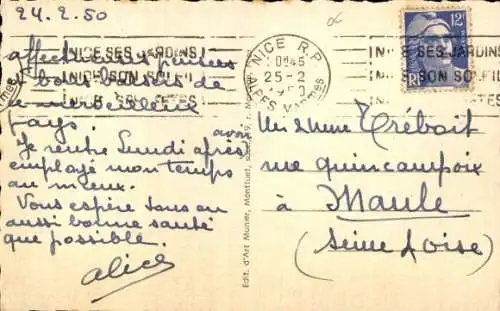 24.2.50
affectueuses pensées
& bons baisers de
ce merveilleux
pays.
Je rentre Lundi après avoir
employé mon temps
au mieux.
Vous espère tous en
aussi bonne santé
que possible.
Alice
NICE SES JARDINS
NICE SON SOLEIL
NICE SES FETES
NICE R.P.
10H45
25-2
1950
ALPES Mmes
NICE SES JARDINS
NICE SON SOLEIL
NICE SES FETES
12F
RF
Edit. d'Art Munier,
Mr & Mme Tréboit
rue quincampoix
à Maule
(Seine & Oise)